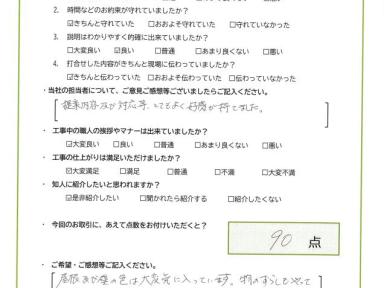 2. 時間などのお約束が守れていましたか？
☑きちんと守れていた □おおよそ守れていた □守れていなかった
3. 説明はわかりやすく的確に出来ていましたか？
□大変良い ☑良い □普通 □あまり良くない □悪い
4. 打合せした内容がきちんと現場に伝わっていましたか？
☑きちんと伝わっていた □おおよそ伝わっていた □伝わっていなかった
・当社の担当者について、ご意見ご感想等ございましたらご記入ください。
提案内容及び対応等、とてもよく好感が持てました。
・ 工事中の職人の挨拶やマナーは出来ていましたか？
☑大変良い □良い □普通 □あまり良くない □悪い
・ 工事の仕上がりは満足いただけましたか？
☑大変満足 □満足 □普通 □不満 □大変不満
・ 知人に紹介したいと思われますか？
☑是非紹介したい □聞かれたら紹介する □紹介したくない
・ 今回のお取引に、あえて点数をお付けいただくと？
90 点
・ ご希望・ご感想等ご記入ください。
屋根及び壁の色は大変気に入っています。物の